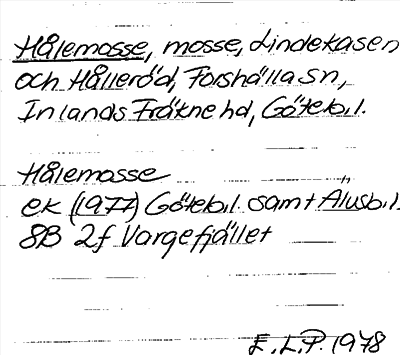 Hålemosse, mosse, Lindekasen
och Hålleröd, Forshälla sn,
Inlands Fräkne hd, Göteb.l.
Hålemosse
ek (1977) Göteb.l. samt Älvsb.l.
8B 2f Vargefjället
E.L.P. 1978